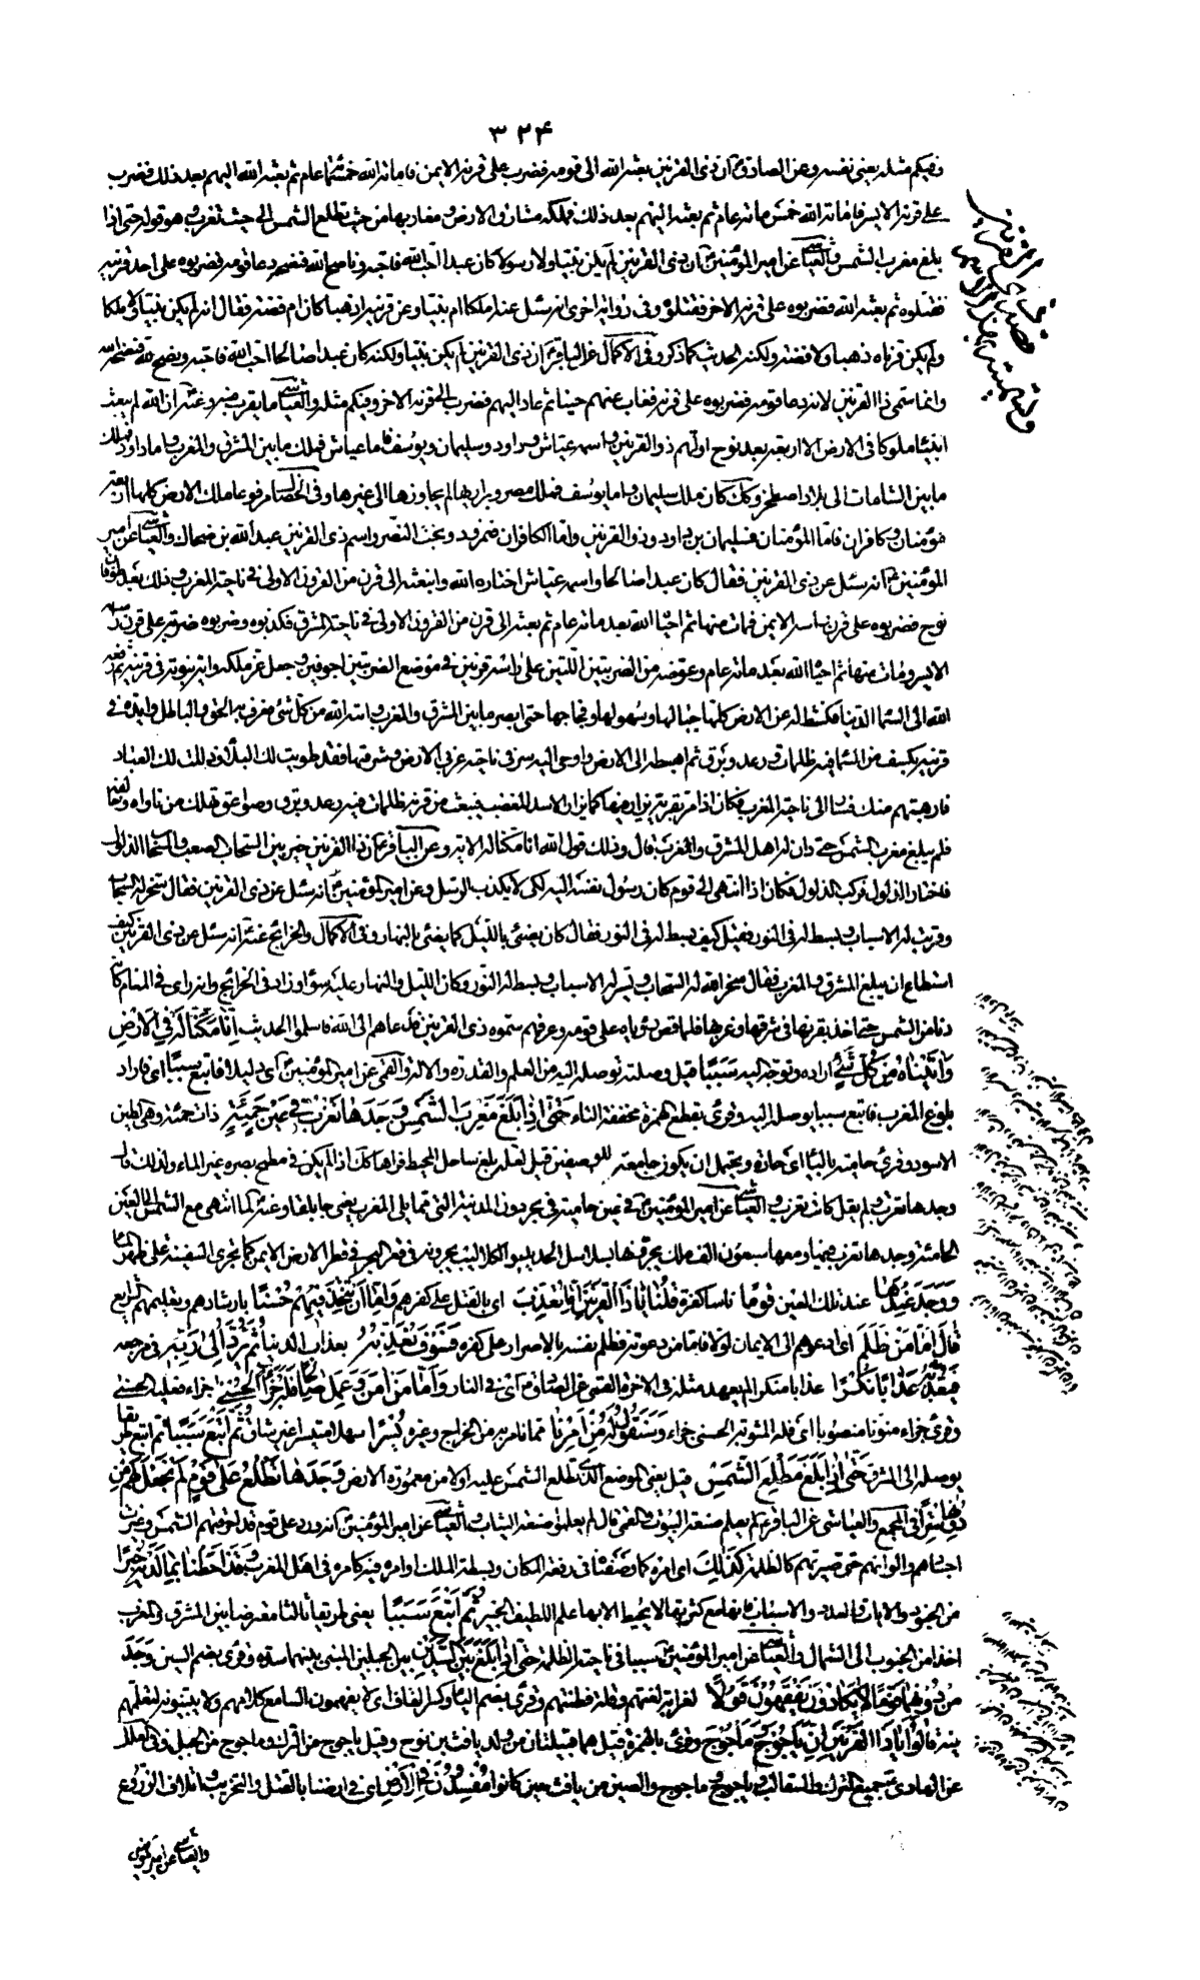 ٣٢۴
وفيكم مثله يعني نفسه وعن الصادق ع ان ذي القرنين بعثه الله الى قومه فضرب على قرنه الايمن فاماته الله خمسمائة عام ثم بعثه الله اليهم بعد ذلك فضرب
على قرنه الايسر فاماته الله خمس مائة عام ثم بعثه اليهم بعد ذلك فملكه مشارق الارض ومغاربها من حيث تطلع الشمس الى حيث تغرب وهو قوله حتى اذا
بلغ مغرب الشمس والعياشي عن امير المؤمنين ع ان ذي القرنين لم يكن نبيا ولا رسولا كان عبدا احب الله فاحبه وناصح الله فنصحه دعا قومه فضربوه على احد قرنيه
فقتلوه ثم بعثه الله فضربوه على قرنه الاخر فقتلوه وفي رواية اخرى انه سئل عنه املكا ام نبيا وعن قرنيه اذهبا كان ام فضة فقال انه لم يكن نبيا ولا ملكا
ولم يكن قرناه ذهبا ولا فضة ولكنه الحديث كما ذكر وفي الاكمال عن الباقر ع ان ذي القرنين لم يكن نبيا ولكنه كان عبدا صالحا احب الله فاحبه ونصح لله فنصحه الله
وانما سمي ذا القرنين لانه دعا قومه فضربوه على قرنه فغاب عنهم حينا ثم عاد اليهم فضرب الى قرنه الاخر وفيكم مثله والعياشي ما يقرب منه وعنه ان الله لم يبعث
انبياء ملوكا في الارض الا اربعة بعد نوح اولهم ذو القرنين واسمه عياش وداود وسليمان ويوسف فاما عياش فملك ما بين المشرق والمغرب واما داود فملك
ما بين الشامات الى بلاد اصطخر وكذلك كان ملك سليمان واما يوسف فملك مصر وبراريها لم يجاوزها الى غيرها وفي الخصال مرفوعا ملك الارض كلها اربعة
مؤمنان وكافران فاما المؤمنان فسليمان بن داود وذو القرنين واما الكافران فنمرود وبخت النصر واسم ذي القرنين عبد الله بن ضحاك والعياشي عن امير
المؤمنين ع انه سئل عن ذي القرنين فقال كان عبدا صالحا واسمه عياش اختاره الله وابتعثه الى قرن من القرون الاولى في ناحية المغرب وذلك بعد طوفان
نوح فضربوه على قرن رأسه الايمن فمات منها ثم احياه الله بعد مائة عام ثم بعثه الى قرن من القرون الاولى في ناحية المشرق فكذبوه وضربوه ضربة على قرن رأسه
الايسر ومات منها ثم احياه الله بعد مائة عام وعوضه من الضربتين اللتين على رأسه قرنين في موضع الضربتين اجوفين وجعل عز ملكه واية نبوته في قرنيه ثم رفعه
الله الى السماء الدنيا فكشط له عن الارض كلها جبالها وسهولها وفجاجها حتى ابصر ما بين المشرق والمغرب واتاه الله من كل شئ فعرف به الحق والباطل وايده في
قرنيه بكسف من السماء فيه ظلمات ورعد وبرق ثم اهبط الى الارض واوحى اليه سر في ناحية غربي الارض وشرقها فقد طويت لك البلاد وذللت لك العباد
فارهبتهم منك فسار الى ناحية المغرب فكان اذا مر بقرية زأر فيها كما يزأر الاسد المغضب فينبعث من قرنيه ظلمات فيه رعد وبرق وصواعق تهلك من ناواه وخالفه
فلم يبلغ مغرب الشمس حتى دان له اهل المشرق والمغرب قال وذلك قول الله انا مكنا له الاية وعن الباقر ع ان ذا القرنين خير بين السحاب الصعب والسحاب الذلول
فاختار الذلول فركب الذلول فكان اذا انتهى الى قوم كان رسول نفسه اليه لكي لا يكذب الرسل وعن امير المؤمنين ع انه سئل عن ذي القرنين فقال سخر له السحاب
وقربت له الاسباب وبسط له في النور فقيل كيف بسط له في النور فقال كان يضئ بالليل كما يضئ بالنهار وفي الاكمال والخرائج عنه ع انه سئل عن ذي القرنين كيف
استطاع ان يبلغ المشرق والمغرب فقال سخر الله له السحاب ويسر له الاسباب وبسط له النور وكان الليل والنهار عليه سواء وزاد في الخرائج وانه راى في المنام كانه
دنا من الشمس حتى اخذ بقرنها في شرقها وغربها فلما قص رؤياه على قومه وعرفهم سموه ذي القرنين فدعاهم الى الله فاسلموا الحديث اِنّا مَكَّنّا لَهُ فِي الْاَرْضِ
وَاٰتَيْناهُ مِنْ كُلِّ شَيْءٍ اراده وتوجه اليه سَبَبًا قيل وصلة توصله اليه من العلم والقدرة والالة والقمي عن امير المؤمنين ع اي دليلا فاتبع سببا اي فاراد
بلوغ المغرب فاتبع سببا يوصل اليه وقرئ بقطع الهمزة مخففة التاء حَتّى اِذا بَلَغَ مَغْرِبَ الشَّمْسِ وَجَدَها تَغْرُبُ فِي عَيْنٍ حَمِئَةٍ ذات حمئة وهو الطين
الاسود وقرئ حامية بالياء اي حارة ويحتمل ان يكون جامعة للوصفين قيل لعله بلغ ساحل المحيط فراها كذلك اذ لم يكن في مطمح بصره غير الماء ولذلك قال
وجدها تغرب ولم يقل كانت تغرب والعياشي عن امير المؤمنين ع في عين حامية في بحر دون المدينة التي مما يلي المغرب يعني جابلقا وعنه لما انتهى مع الشمس الى العين
الحامئة وجدها تغرب فيها ومعها سبعون الف ملك يجرونها بسلاسل الحديد والكلاليب يجرونه في قعر البحر في قطر الارض الايمن كما تجري السفينة على ظهر الماء
وَوَجَدَ عِنْدَها عند تلك العين قَوْمًا ناسا كفرة قُلْنا يا ذَا الْقَرْنَيْنِ اِمّا اَنْ تُعَذِّبَ اي بالقتل على كفرهم وَاِمّا اَنْ تَتَّخِذَ فِيهِمْ حُسْنًا بارشادهم وتعليمهم الشرايع
قالَ اَمّا مَنْ ظَلَمَ اي ادعوهم الى الايمان اولا فاما من دعوته فظلم نفسه بالاصرار على كفره فَسَوْفَ نُعَذِّبُهُ بعذاب الدنيا ثُمَّ يُرَدُّ اِلى رَبِّهِ في مرجعه
فَيُعَذِّبُهُ عَذابًا نُكْرًا عذابا منكرا لم يعهد مثله في الاخرة القمي عن الصادق ع اي في النار وَاَمّا مَنْ اٰمَنَ وَعَمِلَ صالِحًا فَلَهُ جَزاءً الْحُسْنى جزاء فعله الحسنى
وقرئ جزاء منونا منصوبا اي فله المثوبة الحسنى جزاء وَسَنَقُولُ لَهُ مِنْ اَمْرِنا مما نامر به من الخراج وغيره يُسْرًا سهلا متيسرا غير شاق ثُمَّ اَتْبَعَ سَبَبًا ثم اتبع طريقا
يوصله الى المشرق حَتّى اِذا بَلَغَ مَطْلِعَ الشَّمْسِ قيل يعني الموضع الذي تطلع الشمس عليه اولا من معمورة الارض وَجَدَها تَطْلُعُ عَلى قَوْمٍ لَمْ نَجْعَلْ لَهُمْ مِنْ
دُونِها سِتْرًا في المجمع والعياشي عن الباقر ع لم يعلموا صنعة البيوت والقمي قال لم يعلموا صنعة الثياب والعياشي عن امير المؤمنين ع انه ورد على قوم قد احرقتهم الشمس وغيرت
اجسادهم والوانهم حتى صيرتهم كالظلمة كَذلِكَ اي امره كما وصفناه في رفعة المكان وبسطة الملك او امره فيه كامره في اهل المغرب وَقَدْ اَحَطْنا بِما لَدَيْهِ خُبْرًا
من الجنود والالات والعدد والاسباب فانها مع كثرتها لا يحيط الا بها علم اللطيف الخبير ثُمَّ اَتْبَعَ سَبَبًا يعني طريقا ثالثا معترضا بين المشرق والمغرب
اخذا من الجنوب الى الشمال والعياشي عن امير المؤمنين ع سببا في ناحية الظلمة حَتّى اِذا بَلَغَ بَيْنَ السَّدَّيْنِ بين الجبلين المبني بينهما سده وقرئ بضم السين وَجَدَ
مِنْ دُونِهِما قَوْمًا لا يَكادُونَ يَفْقَهُونَ قَوْلًا لغرابة لغتهم وقلة فطنتهم وقرئ بضم الياء وكسر القاف اي لا يفهمون السامع كلامهم ولا يبينونه لتعلثمهم
فيه قالُوا يا ذَا الْقَرْنَيْنِ اِنَّ يَأْجُوجَ وَمَأْجُوجَ وقرئ بالهمزة قيل هما قبيلتان من ولد يافث بن نوح وقيل يأجوج من الترك ومأجوج من الجبل وفي العلل
عن الهادي ع جميع الترك والسقالب ويأجوج ومأجوج والصين من يافث حيث كانوا مُفْسِدُونَ فِي الْاَرْضِ اي في ارضنا بالقتل والتخريب واتلاف الزروع
والعياشي عن امير المؤمنين
في قصة ذي القرنين
وتسميته بهذا الاسم